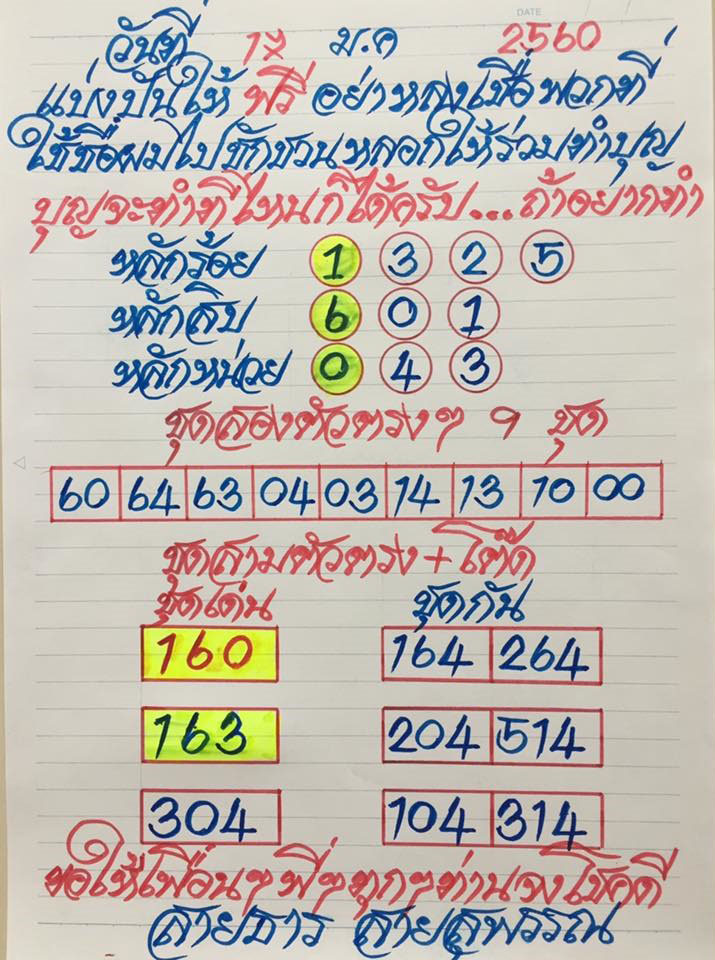 DATE
วันที่ 17 ม.ค 2560
แบ่งปันให้ ฟรี อย่าหลงเชื่อพวกที่
ใช้ชื่อผมไปชักชวนหลอกให้ร่วมทำบุญ
บุญจะทำที่ไหนก็ได้ครับ...ถ้าอยากทำ
หลักร้อย 1 3 2 5
หลักสิบ 6 0 1
หลักหน่วย 0 4 3
ชุดสองตัวตรงๆ 9 ชุด
60 64 63 04 03 14 13 10 00
ชุดสามตัวตรง+โต๊ด
ชุดเด่น ชุดกัน
160 164 264
163 204 514
304 104 314
ขอให้เพื่อนๆพี่ๆทุกๆท่านจงโชคดี
สายธาร สายสุพรรณ